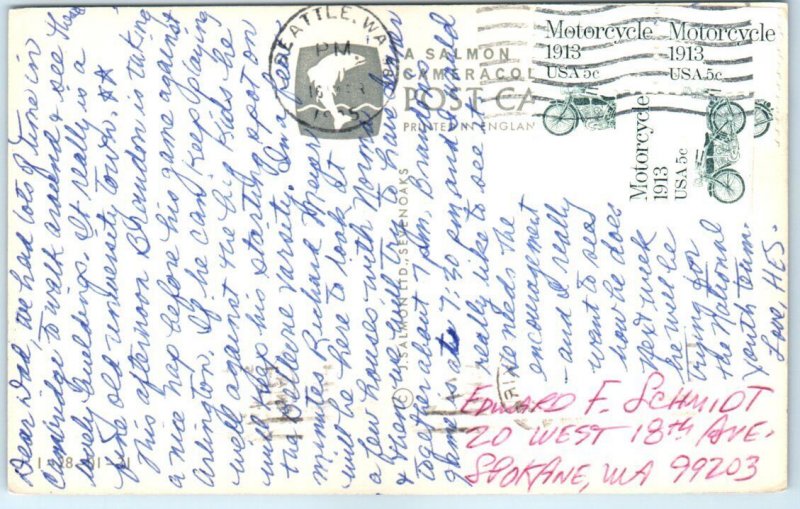 Dear Dad, we had lots of time in
Cambridge to walk around & see the
lovely buildings. It really is a
fine old university town. **
This afternoon Brandon is taking
a nap before his game against
Arlington. If he can keep playing
well against the big kids he
will keep his starting spot on
the varsity. In a few
minutes Richard
will be here to look at
a few houses with Norma
& then we will try to have dinner
together about 7 pm. Brandon's
game is at 7:30 pm and I would
really like to see it
he needs the
encouragement
- and I really
want to see
how he does
next week
he will be
trying for
the National
youth team.
Love, HES.
SEATTLE, WA
PM
A SALMON
CAMERACOL
POST CA
PRINTED IN ENGLAN
© J. SALMON LTD., SEVENOAKS
Motorcycle
1913
USA 5c
Motorcycle
1913
USA 5c
Motorcycle
1913
USA 5c
EDWARD F. SCHMIDT
20 WEST 18th AVE.
SPOKANE, WA 99203